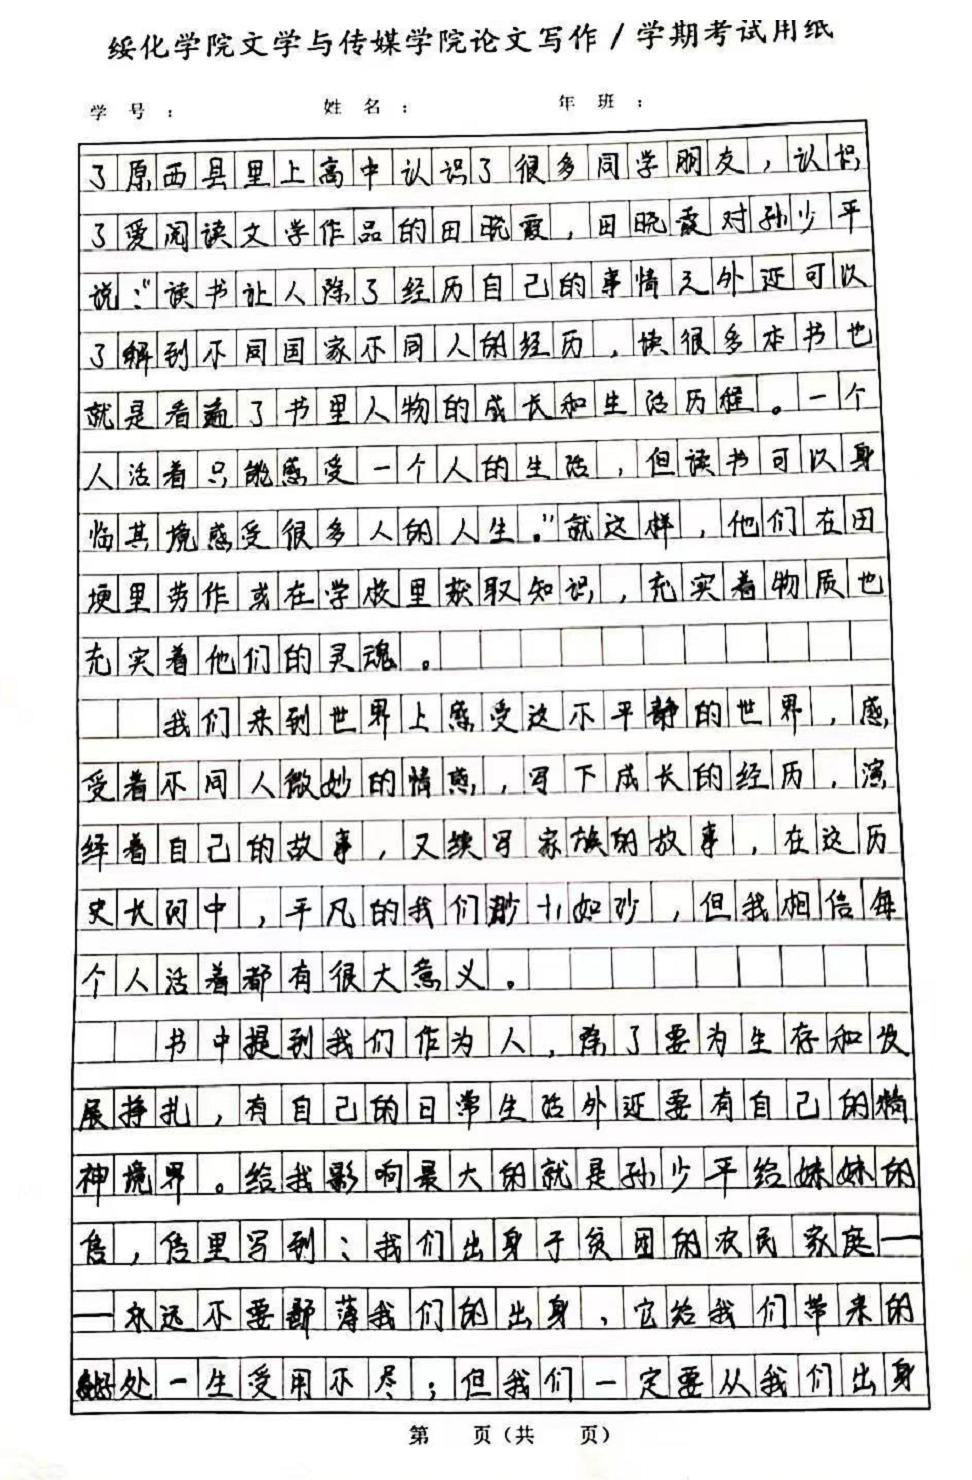 绥化学院文学与传媒学院论文写作/学期考试用纸
学号： 姓名： 年班：
了原西县里上高中认识了很多同学朋友，认识
了爱阅读文学作品的田晓霞，田晓霞对孙少平
说：“读书让人除了经历自己的事情之外还可以
了解到不同国家不同人的经历，读很多本书也
就是看遍了书里人物的成长和生活历程。一个
人活着只能感受一个人的生活，但读书可以身
临其境感受很多人的人生。”就这样，他们在田
埂里劳作或在学校里获取知识，充实着物质也
充实着他们的灵魂。
我们来到世界上感受这不平静的世界，感
受着不同人微妙的情感，写下成长的经历，演
绎着自己的故事，又续写家族的故事，在这历
史长河中，平凡的我们渺小如沙，但我相信每
个人活着都有很大意义。
书中提到我们作为人，除了要为生存和发
展挣扎，有自己的日常生活外还要有自己的精
神境界。给我影响最大的就是孙少平给妹妹的
信，信里写到：我们出身于贫困的农民家庭—
—永远不要鄙薄我们的出身，它给我们带来的
好处一生受用不尽；但我们一定要从我们出身
第 页（共 页）